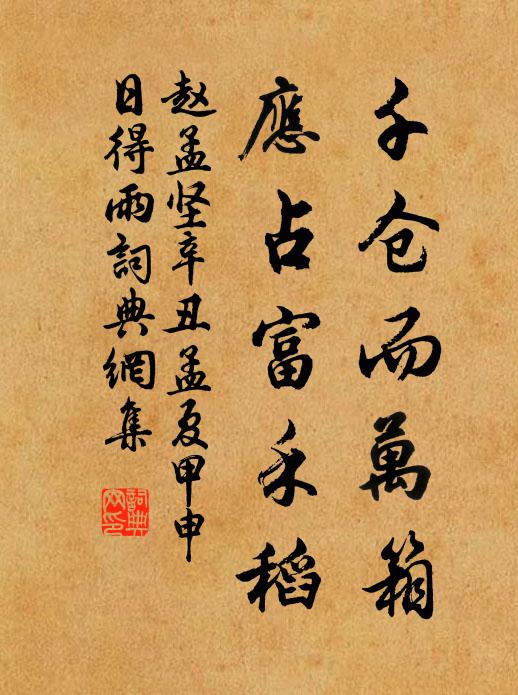 千仓而萬箱
應占富禾稻
赵孟坚辛丑孟夏甲申
日得雨詞典網集
詞典网印